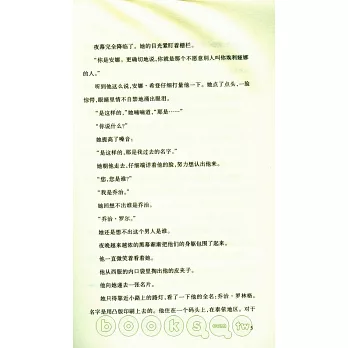 夜幕完全降临了。她的目光紧盯着栅栏。
“你是安娜。更确切地说，你就是那个不愿意别人叫你埃利娅娜
的人。”
听到他这么说，安娜·希登仔细打量他一下。她点了点头，一脸
惊愕，眼睛里情不自禁地涌出眼泪。
“是这样的，”她喃喃道，“那是……”
“你说什么？”
她提高了嗓音：
“是这样的，那是我过去的名字。”
她朝他走去，仔细端详着他的脸，努力想认出他来。
“您，您是谁？”
“我是乔治。”
她回想不出谁是乔治。
“乔治·罗尔。”
她还是想不出这个男人是谁。
夜晚越来越浓的黑幕渐渐把他们的身躯包围了起来。
他一直微笑着看着她。
他从西服的内口袋里掏出他的皮夹子。
他向她递去一张名片。
她只得靠近小路上的路灯，看了一下他的全名：乔治·罗林格。
名字是用凸版印刷上去的。他住在一个码头上，在泰依地区。对于
books.com.tw